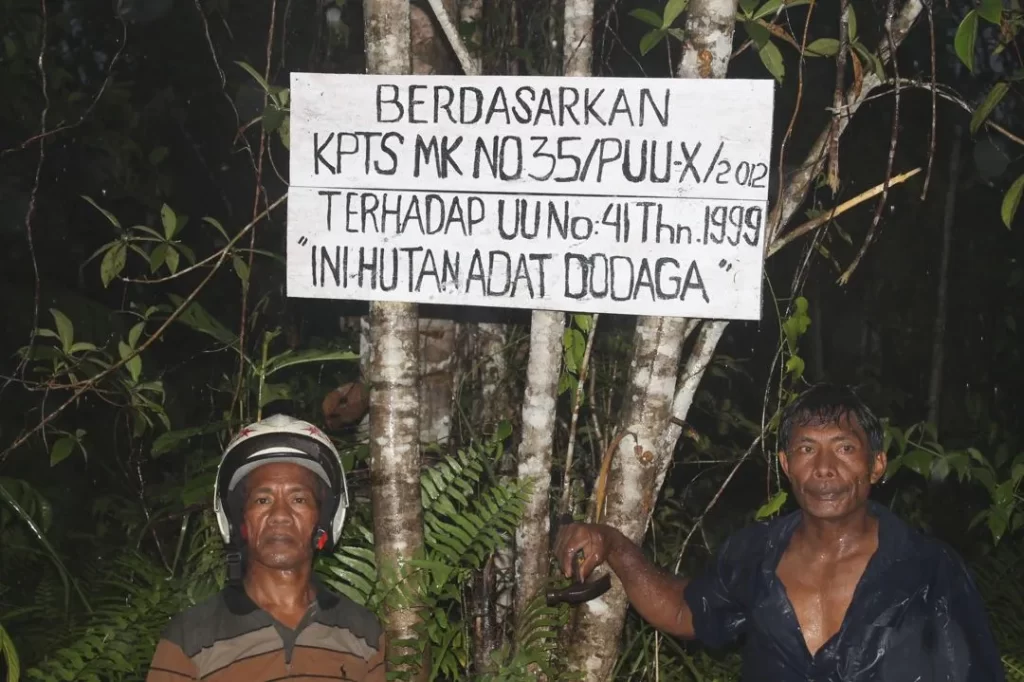 BERDASARKAN
KPTS MK NO 35/PUU-X/2012
TERHADAP UU No: 41 Thn. 1999
"INI HUTAN ADAT DODAGA"